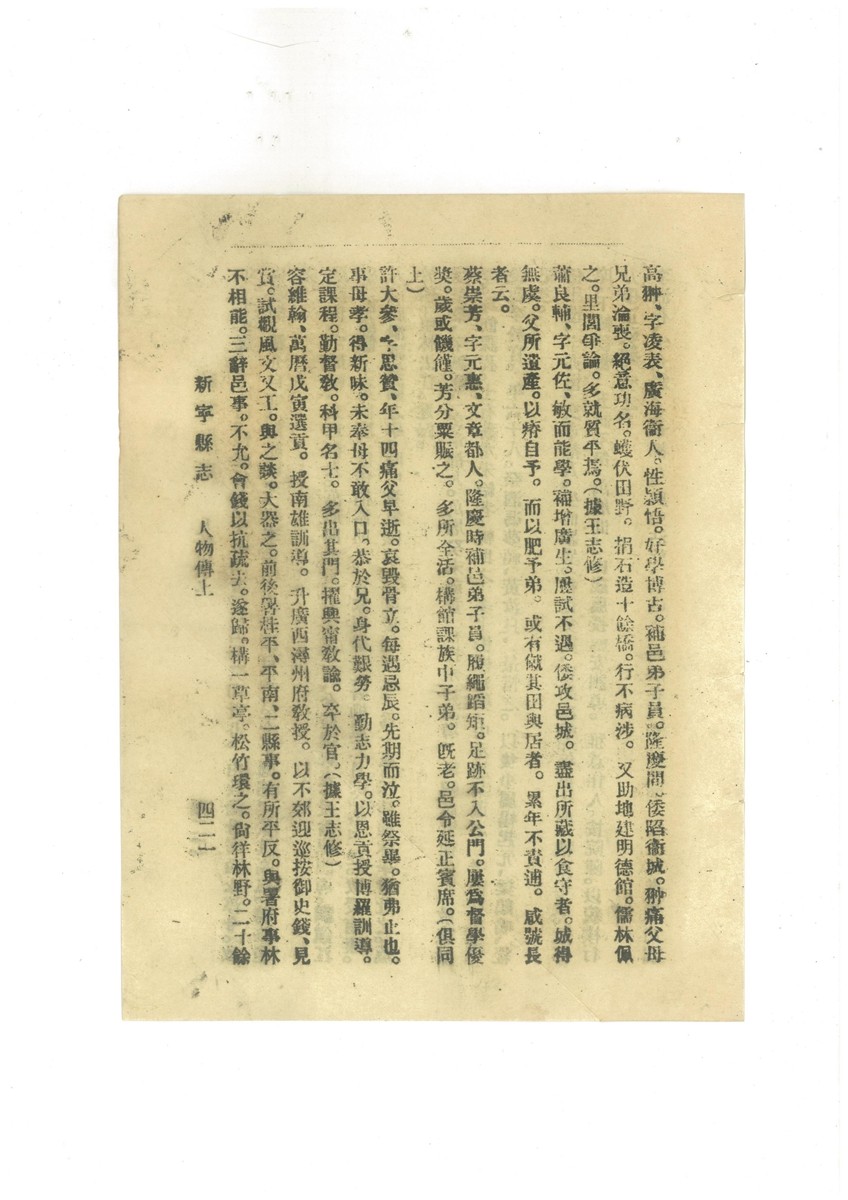 高翀、字凌表、廣海衞人。性穎悟。好學博古。補邑弟子員。隆慶間、倭陷衞城。翀痛父母
兄弟淪喪。絕意功名。蠖伏田野。捐石造十餘橋。行不病涉。又助地建明德館。儒林佩
之。里閭爭論。多就質平焉。(據王志修)
蕭良輔、字元佐、敏而能學。補增廣生。歷試不遇。倭攻邑城。盡出所藏以食守者。城得
無虞。父所遺產。以瘠自予。而以肥予弟。或有僦其田與居者。累年不責逋。咸號長
者云。
蔡崇芳、字元惠、文章都人。隆慶時補邑弟子員。履繩蹈矩。足跡不入公門。屢爲督學優
奬。歲或饑饉。芳分粟賑之。多所全活。構館課族中子弟。旣老。邑令延正賓席。(俱同
上)
許大參、字思贊、年十四痛父早逝。哀毀骨立。每遇忌辰。先期而泣。雖祭畢。猶弗止也。
事母孝。得新味。未奉母不敢入口。恭於兄。身代艱勞。勤志力學。以恩貢授博羅訓導。
定課程。勤督敎。科甲名士。多出其門。擢興甯敎諭。卒於官。(據王志修)
容維翰、萬曆戊寅選貢。授南雄訓導。升廣西潯州府敎授。以不郊迎巡按御史錢、見
賞。試觀風文又工。與之談。大器之。前後署桂平、平南、二縣事。有所平反。與署府事林
不相能。三辭邑事。不允。會錢以抗疏去。遂歸。構一草亭。松竹環之。倘徉林野。二十餘
新寧縣志 人物傳上 四二一